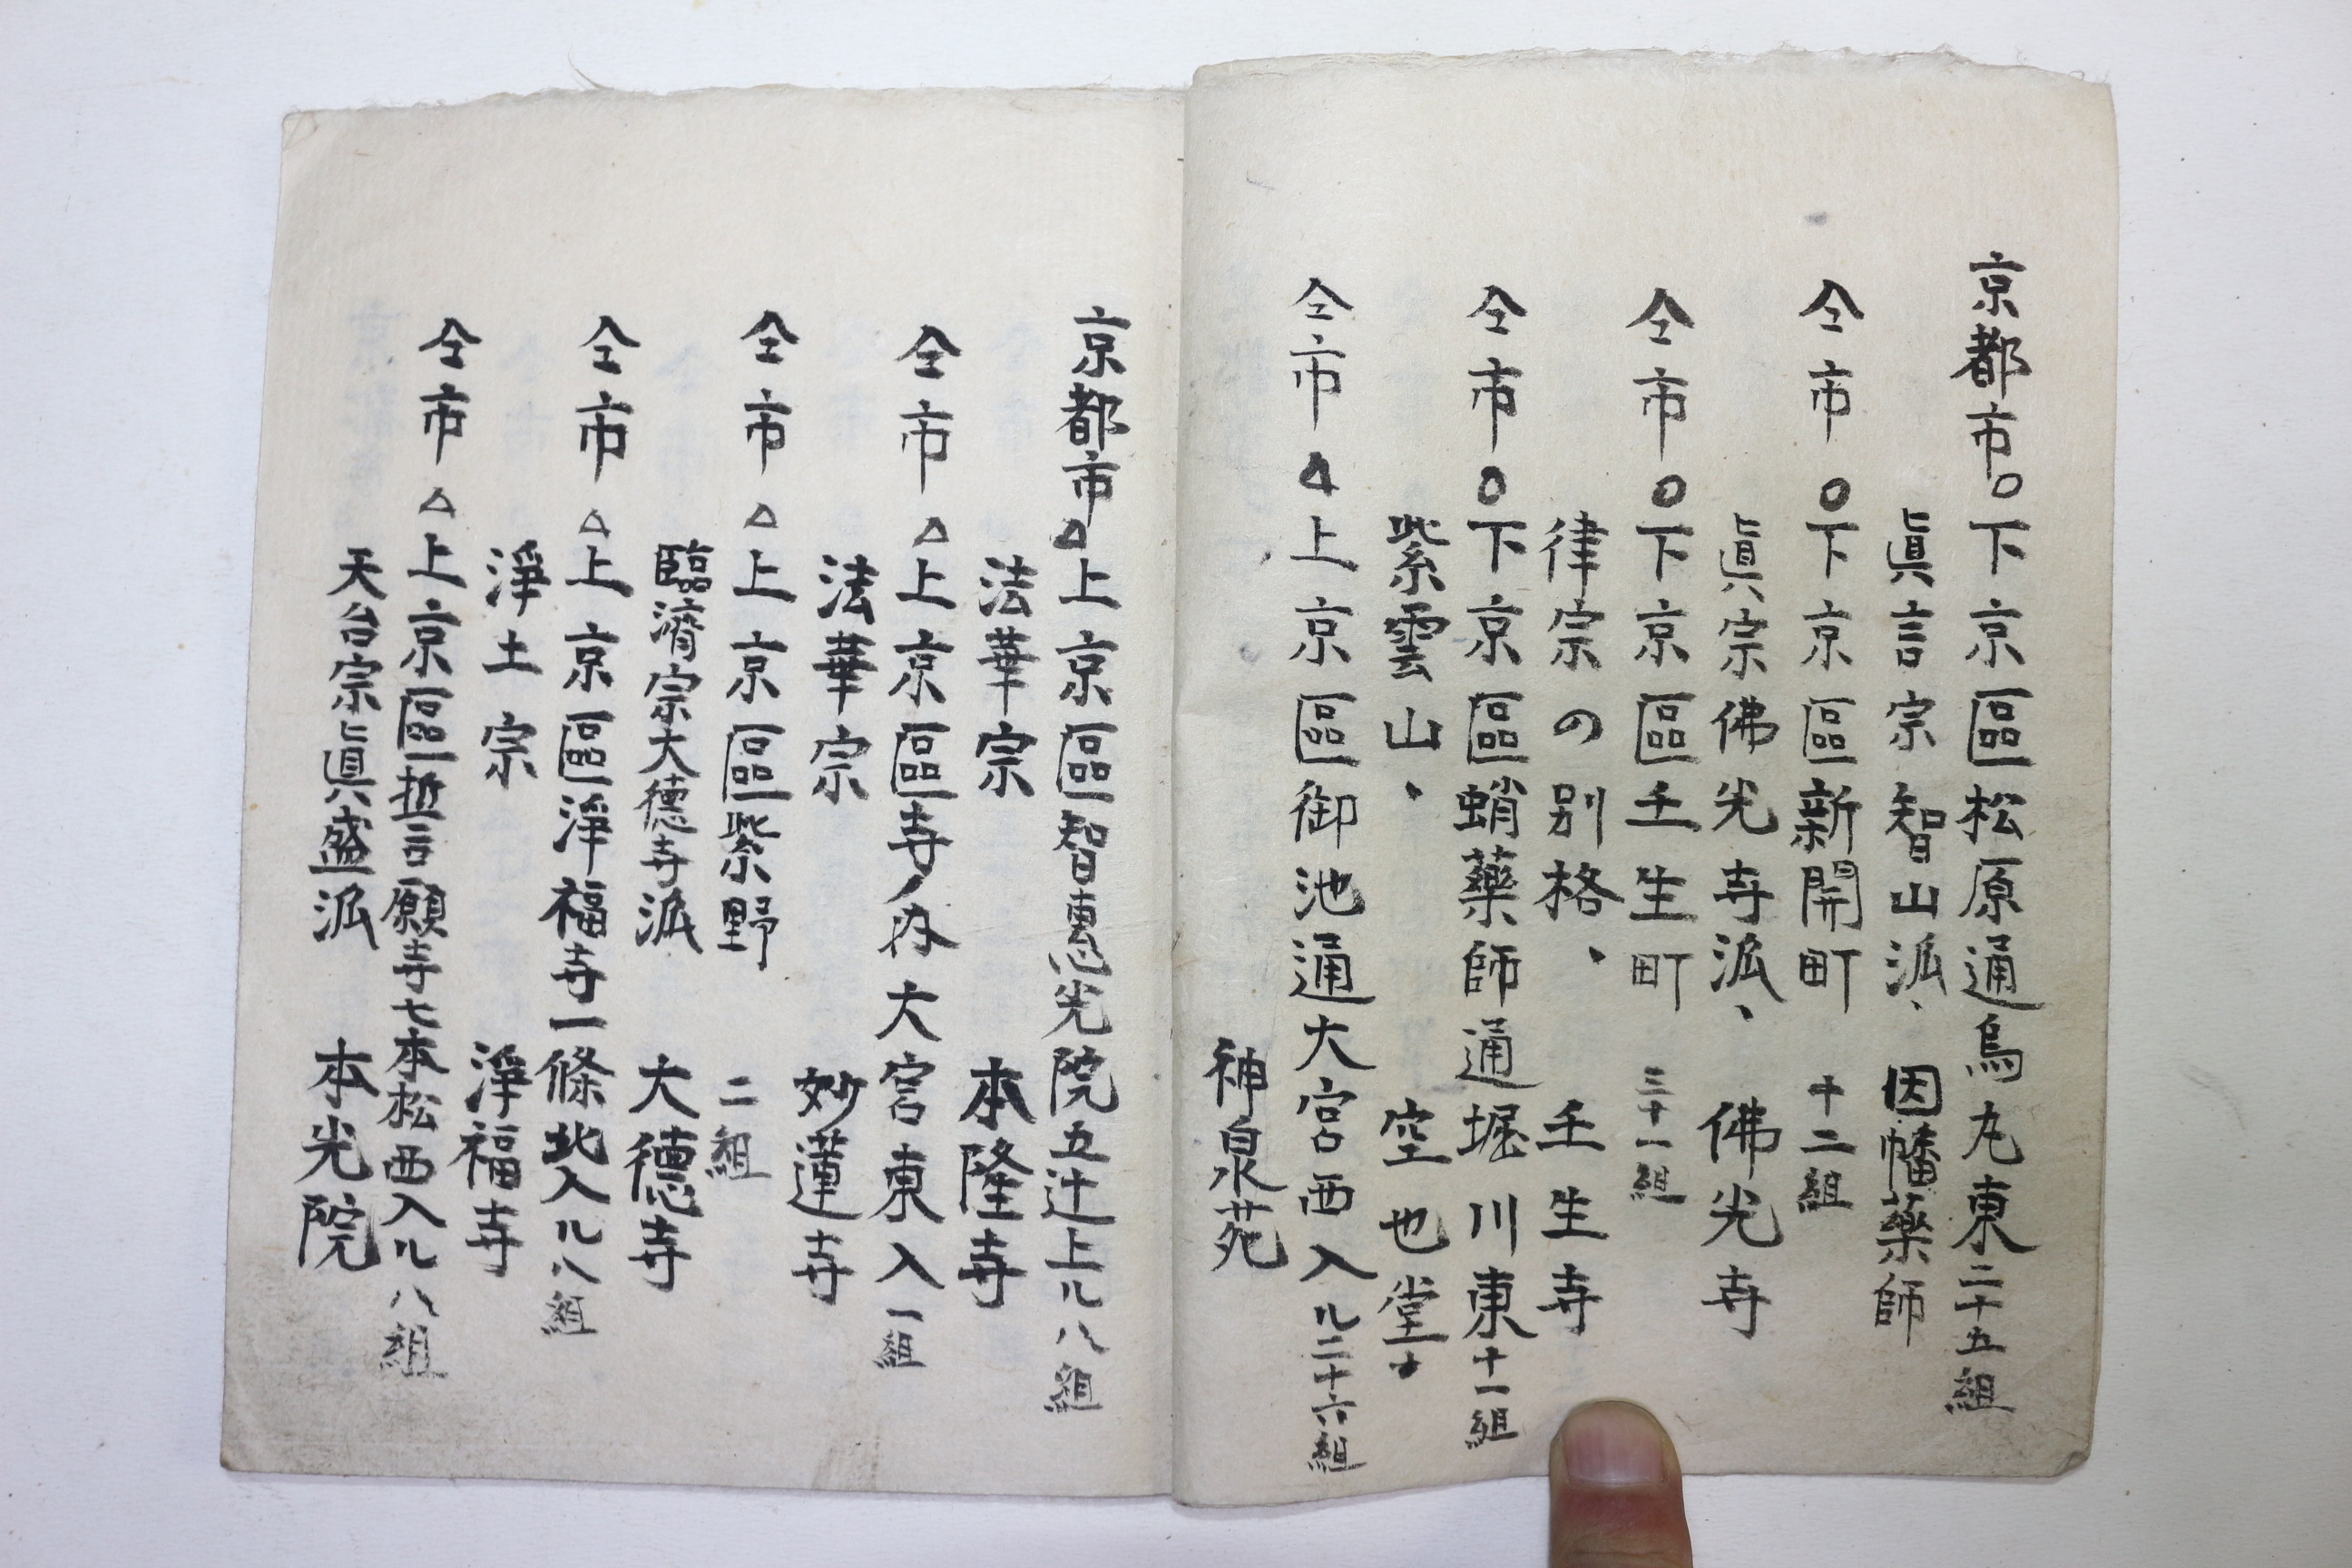 京都市○下京區松原通烏丸東二十五組
眞言宗智山派、因幡藥師
仝市○下京區新開町 十二組
眞宗佛光寺派、佛光寺
仝市○下京區壬生町 三十一組
律宗の別格、壬生寺
仝市○下京區蛸藥師通堀川東十一組
紫雲山、空也堂
仝市△上京區御池通大宮西入ル二十六組
神泉苑
京都市△上京區智惠光院五辻上ル八組
法華宗 本隆寺
仝市△上京區寺ノ内大宮東入一組
法華宗 妙蓮寺
仝市△上京區紫野 二組
臨濟宗大德寺派 大德寺
仝市△上京區淨福寺一條北入ル八組
淨土宗 淨福寺
仝市△上京區誓願寺七本松西入ル八組
天台宗眞盛派 本光院